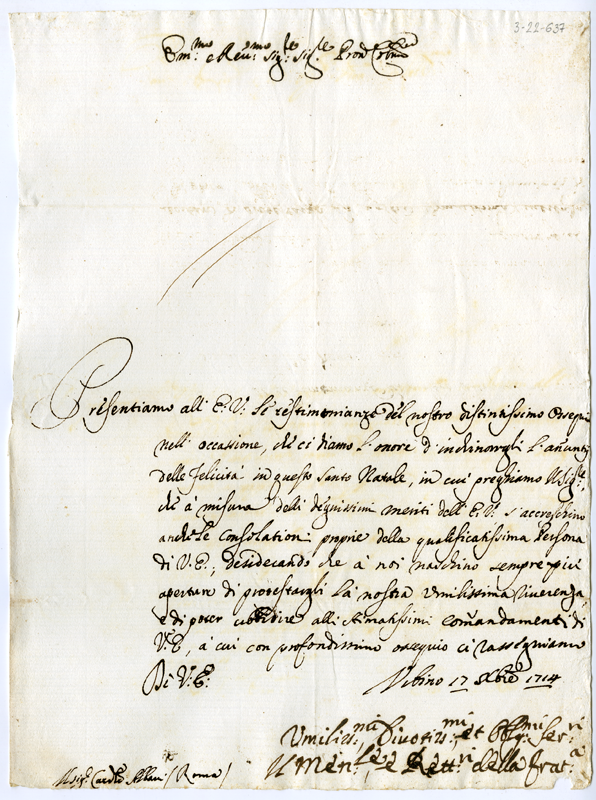 3-22-637
Em.mo e Reu.mo Sig.re Sig.re Pron
Presentiamo all' E. V. le testimonianze del nostro distintissimo Ossequio
nell' occasione, che ci diamo l'onore d'inchinargli l'annuntio
delle felicità in questo Santo Natale, in cui preghiamo
che à misura delli degnissimi meriti dell' E. V. s'accreschino
anche le consolationi proprie della qualificatissima Persona
di V. E., desiderando che à noi naschino sempre più
aperture di protestargli la nostra Vmilissima riuerenza,
e di poter obbedire alli stimatissimi comandamenti di
V. E, à cui con profondissimo ossequio ci rassegniamo
Di V. E.
Vrbino 17 Xbre 1714
Vmiliss.mi Diuotiss.mi et Obblig.mi Ser.ri
e Rett.ri della Frat.a
Card.le (Roma)